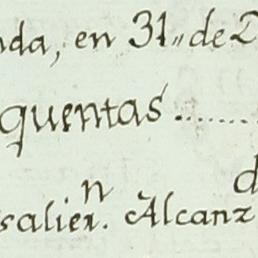 nda, en 31,, de D
quentas ........
salier.n Alcanz d